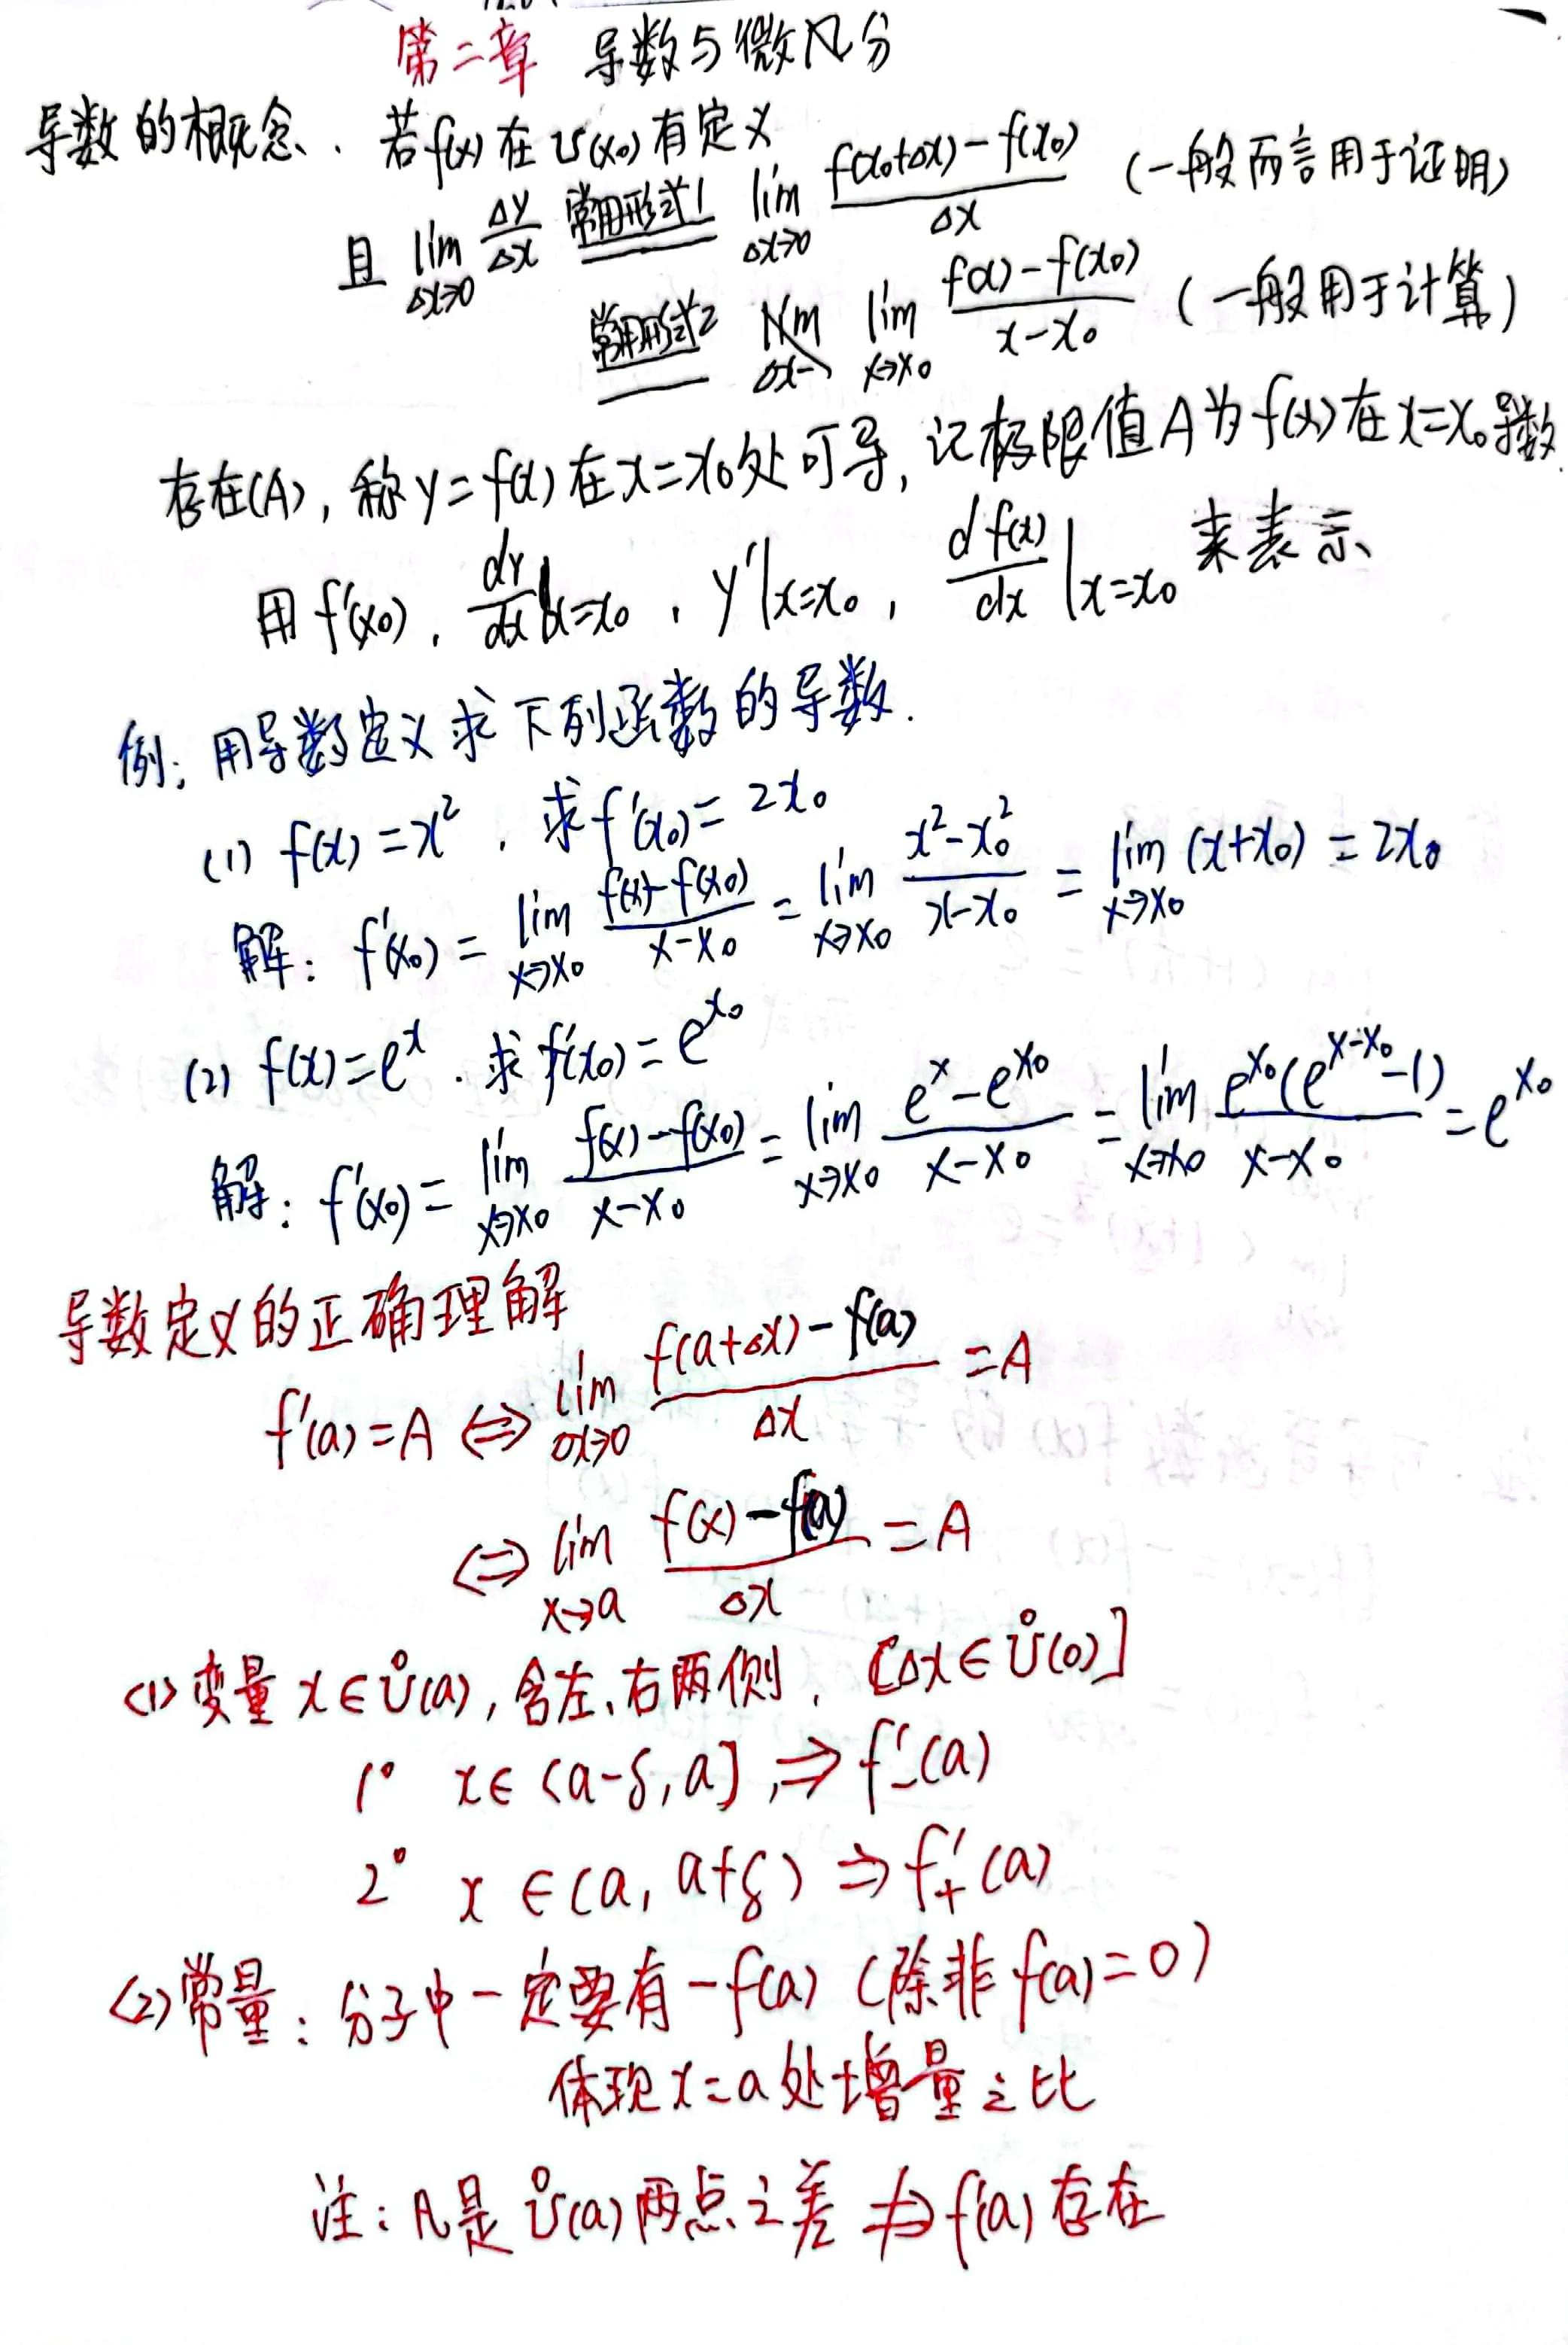 第二章 导数与微分
导数的概念、. 若f(x)在U(x₀)有定义
且 lim_{Δx→0} Δy/Δx 常用形式1 lim_{Δx→0} (f(x₀+Δx)-f(x₀))/Δx (一般而言用于证明)
常用形式2 lim_{x→x₀} (f(x)-f(x₀))/(x-x₀) (一般用于计算)
存在(A), 称y=f(x)在x=x₀处可导, 记极限值A为f(x)在x=x₀导数.
用f'(x₀), dy/dx|x=x₀, y'|x=x₀, df(x)/dx|x=x₀ 来表示
例: 用导数定义求下列函数的导数.
(1) f(x)=x², 求f'(x₀)=2x₀
解: f'(x₀)= lim_{x→x₀} (f(x)-f(x₀))/(x-x₀) = lim_{x→x₀} (x²-x₀²)/(x-x₀) = lim_{x→x₀} (x+x₀) = 2x₀
(2) f(x)=e^x. 求f'(x₀)=e^{x₀}
解: f'(x₀)= lim_{x→x₀} (f(x)-f(x₀))/(x-x₀) = lim_{x→x₀} (e^x-e^{x₀})/(x-x₀) = lim_{x→x₀} e^{x₀}(e^{x-x₀}-1)/(x-x₀) = e^{x₀}
导数定义的正确理解
f'(a)=A ⇔ lim_{Δx→0} (f(a+Δx)-f(a))/Δx =A
⇔ lim_{x→a} (f(x)-f(a))/Δx =A
<1> 变量 x∈Ů(a), 含左、右两侧, [Δx∈Ů(0)]
1° x∈(a-δ,a], ⇒ f'₋(a)
2° x∈(a, a+δ) ⇒ f'₊(a)
<2> 常量: 分子中一定要有-f(a) (除非f(a)=0)
体现x=a处增量之比
注: 凡是Ů(a)两点之差 ⇏ f'(a)存在